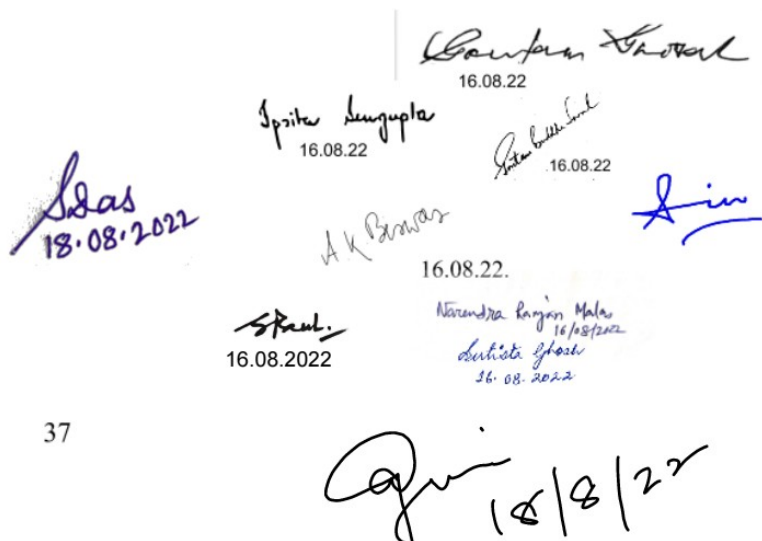 Gautam Ghosal
16.08.22
Ipsita Sengupta
16.08.22
16.08.22
SDas
18.08.2022
A K Biswas
16.08.22.
Narendra Ranjan Malas
16/08/2022
16.08.2022
Sutista Ghosh
16.08.2022
37
18/8/22